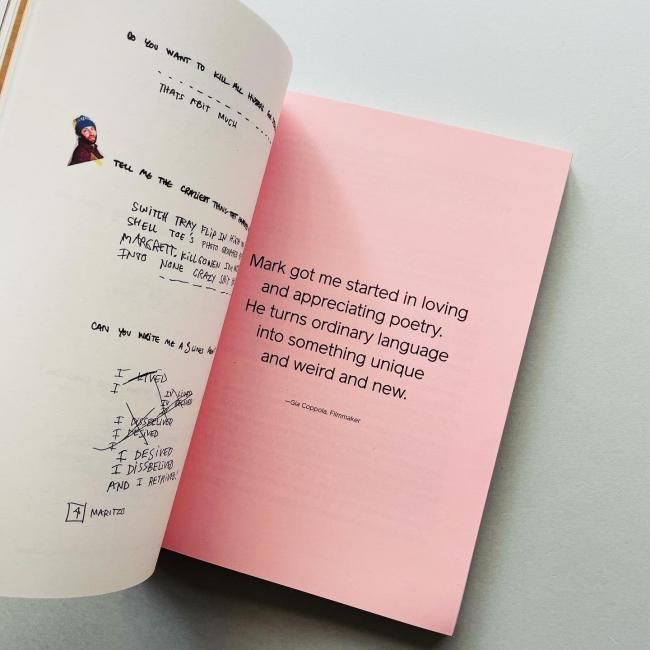 DO YOU WANT TO KILL ALL
THATS ABIT MUCH
TELL ME THE CRAZIEST THING
SWITCH TRAY FLIP IN HIGH
SHELL TOE'S PHOTO
MARGRETT. KILLGOWEN
INTO NONE CRAZY SHIT
CAN YOU WRITE ME A 5 LINES
I LIVED
I
I DISSBELIVED
I DESIVED
I
I DESIVED
I DISSBELIVED
AND I RETRIVED!
4 MARITZO
Mark got me started in loving
and appreciating poetry.
He turns ordinary language
into something unique
and weird and new.
—Gia Coppola, Filmmaker